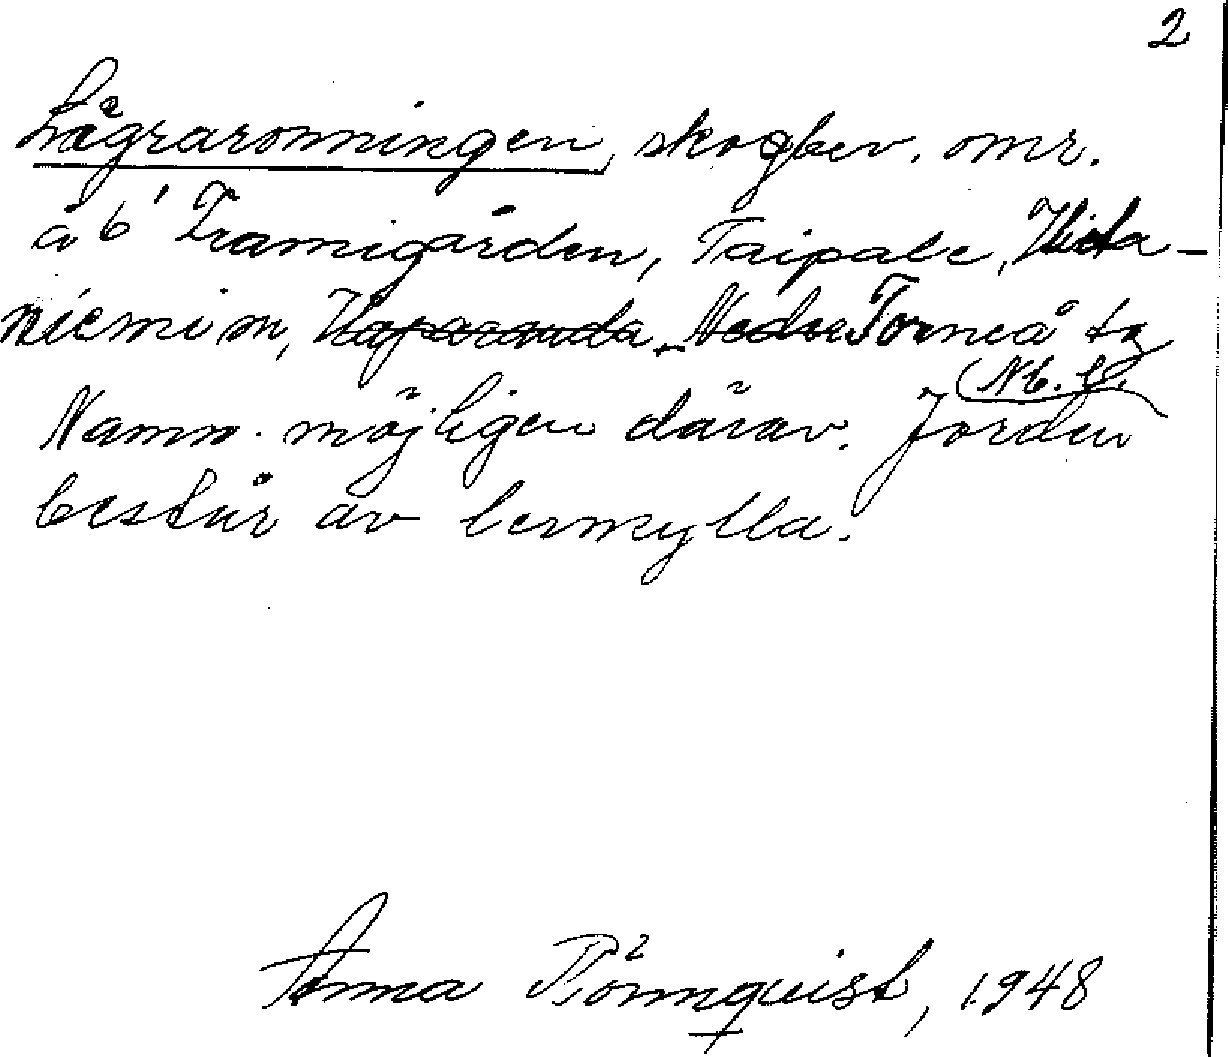 2
Lågraronningen, skogbev. omr.
å b' Framigården, Taipale, Hieta-
niemi sn, Haparanda - Neder Torneå tg
Nb. l.
Namn. möjligen därav. Jorden
består av lermylla.
Anna Rönnquist, 1948